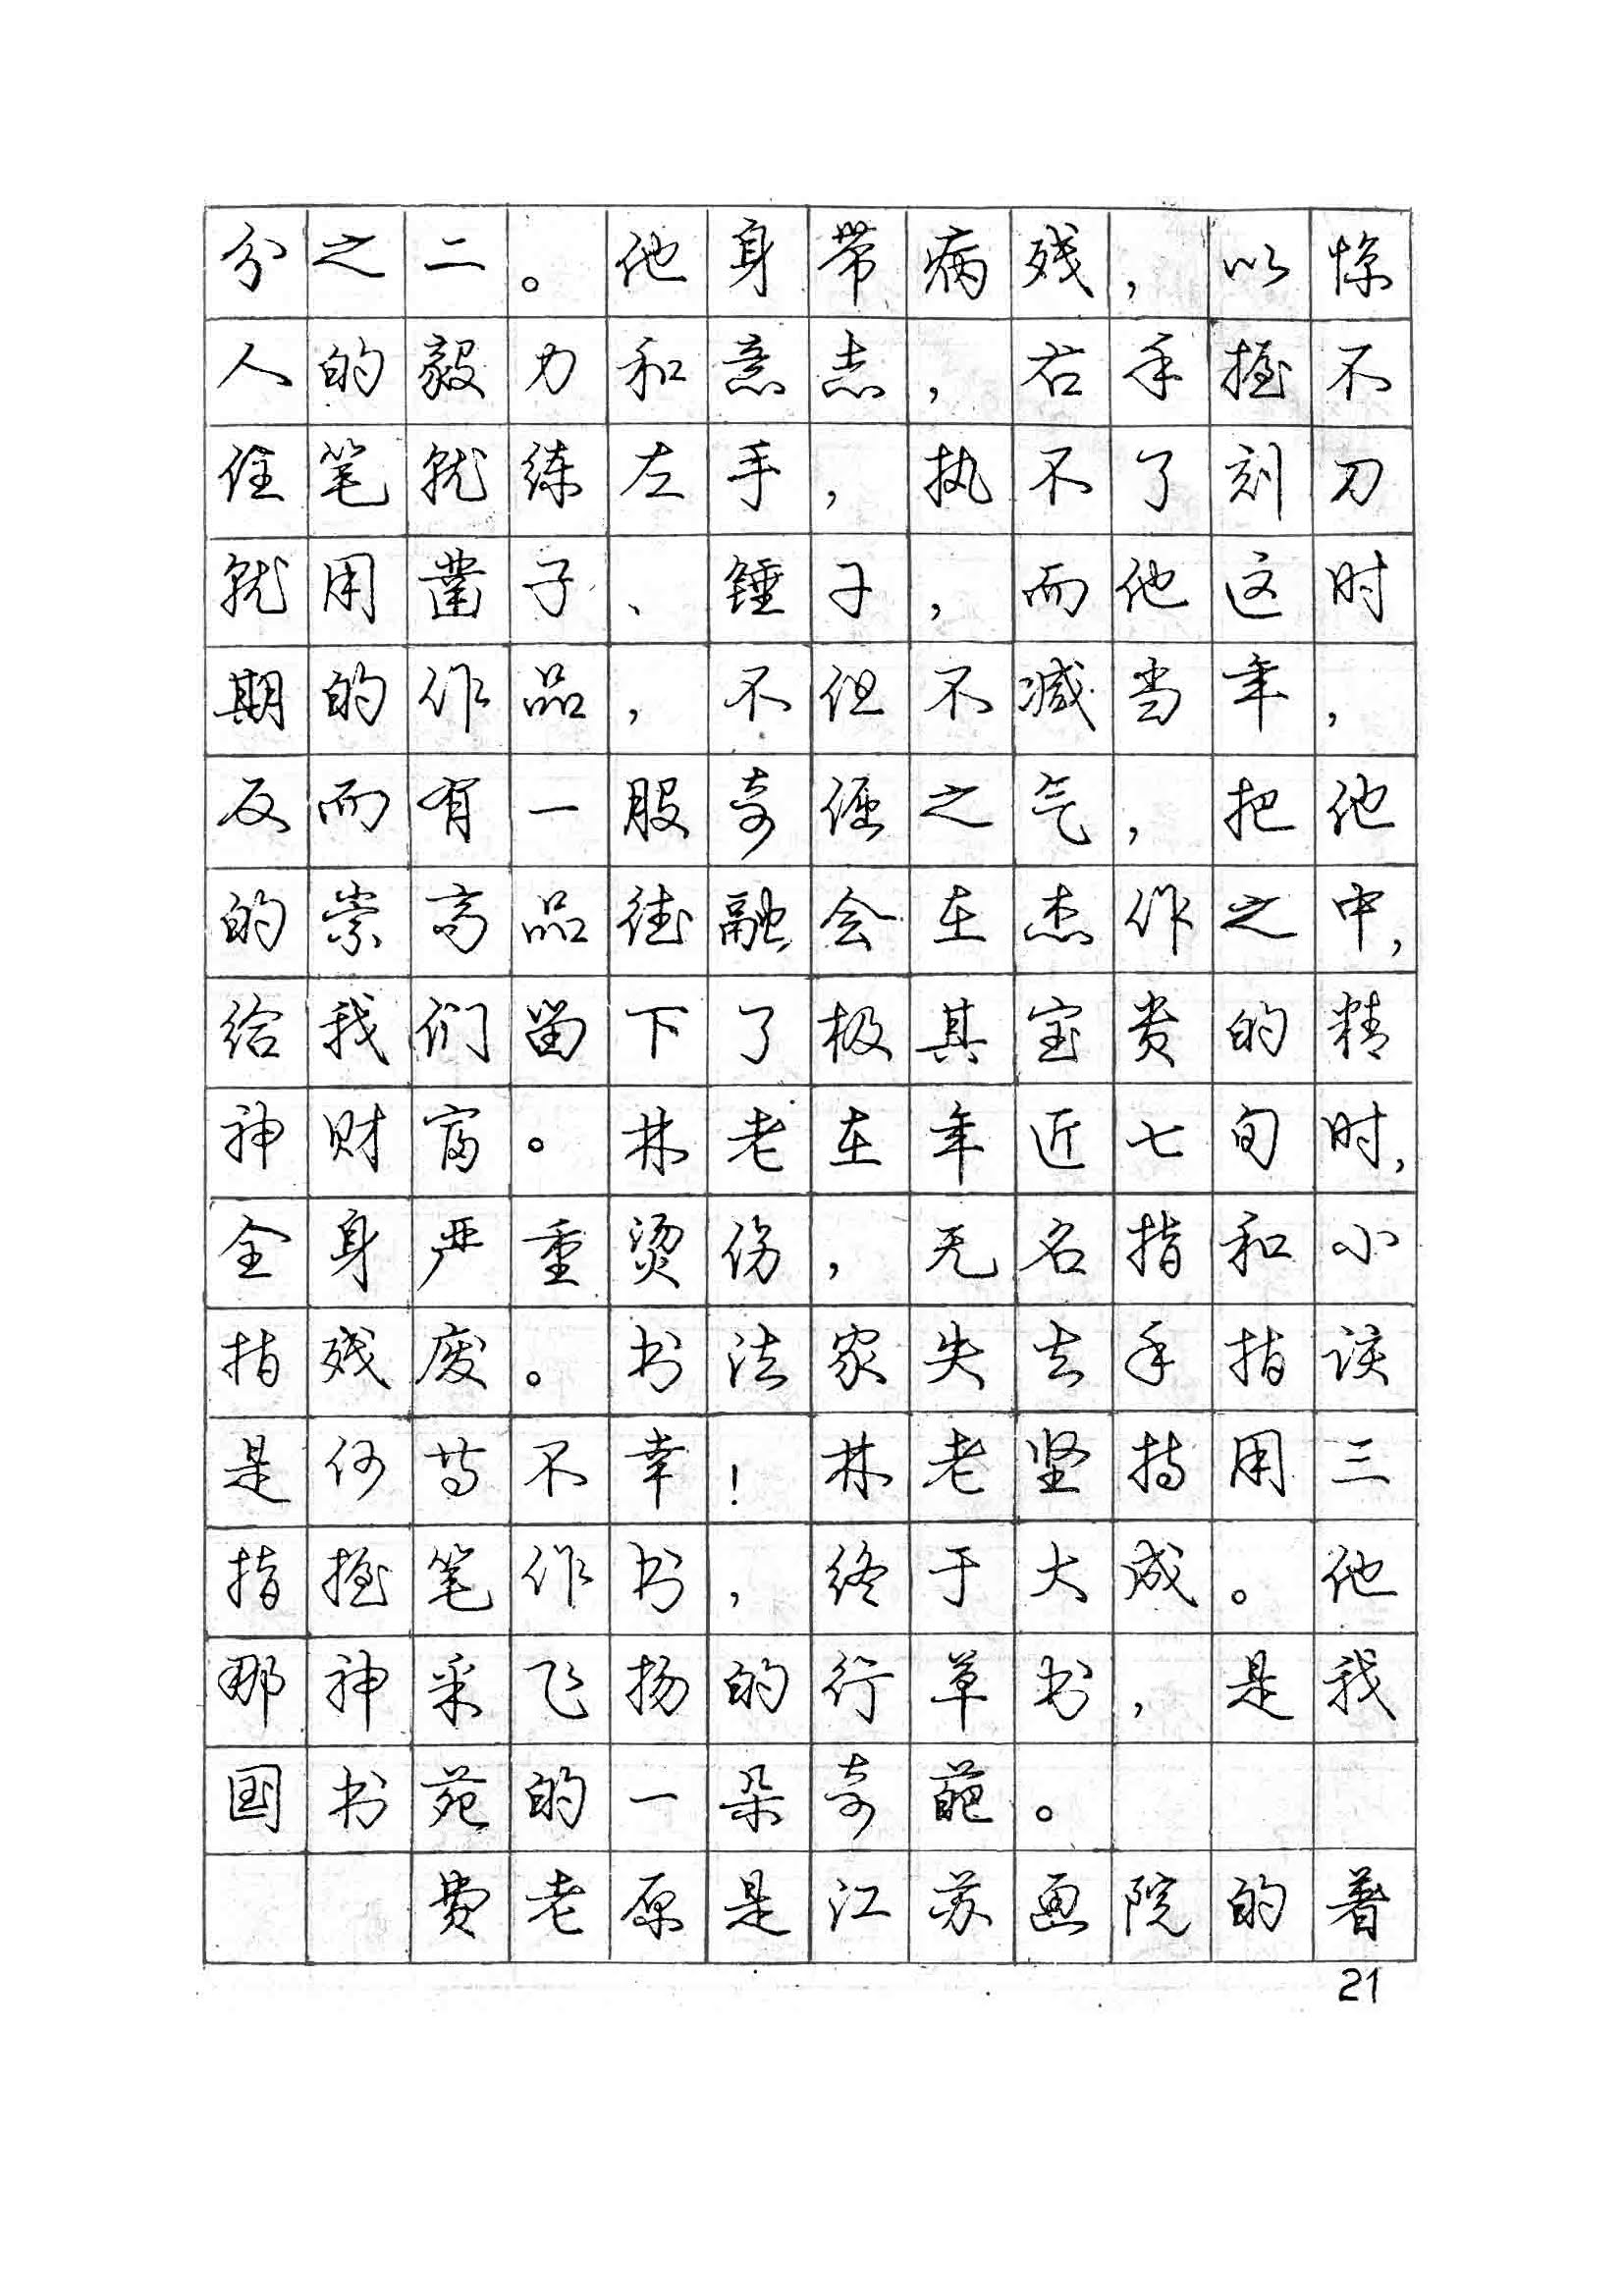 分之二。他身带病残，以惊
人的毅力和意志，右手握不
住笔就练左手，执不了刻刀
就用凿子、锤子，而他这时
期的作品，不但不减当年，
反而有一股奇倔之气，把他
的崇高品德融会在杰作之中，
给我们留下了极其宝贵的精
神财富。林老在年近七旬时，
全身严重烫伤，无名指和小
指残废。书法家失去手指该
是何等不幸！林老坚持用三
指握笔作书，终于大成。他
那神采飞扬的行草书，是我
国书苑的一朵奇葩。
费老原是江苏画院的著
21